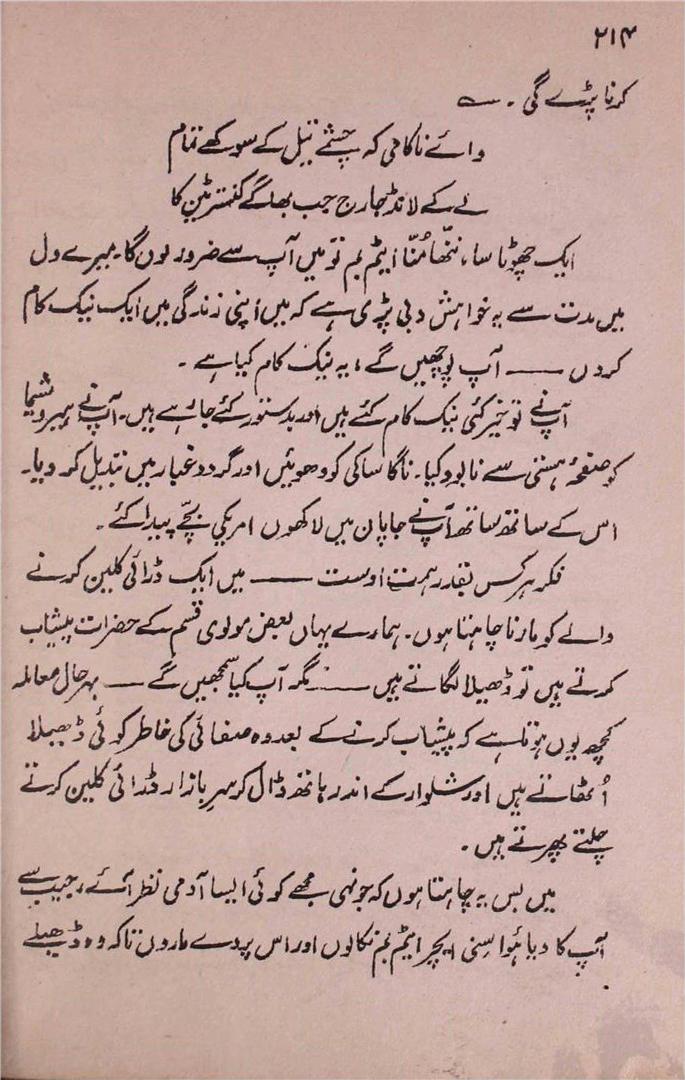 ۲۱۴
کرنا پڑے گی ۔ ؎
وائے ناکامی کہ چشمے تیل کے سوکھے تمام
لے کے لانڈجارج جب بھاگے کنستر ٹین کا
ایک چھوٹا سا، ننھا مُنّا ایٹم بم تو میں آپ سے ضرور لوں گا۔ میرے دل
میں مدت سے یہ خواہش دبی پڑی ہے کہ میں اپنی زندگی میں ایک نیک کام
کردں —— آپ پوچھیں گے، یہ نیک کام کیا ہے ۔
آپ نے تو خیر کئی نیک کام کئے ہیں اور بدستور کئے جا رہے ہیں۔ آپ نے ہیروشیما
کو صفحۂ ہستی سے نابود کیا۔ ناگاساکی کو دھوئیں اور گرد و غبار میں تبدیل کر دیا۔
اس کے ساتھ ساتھ آپ نے جاپان میں لاکھوں امریکی بچّے پیدا کئے ۔
فکر ہرکس بقدر ہمت اوست —— میں ایک ڈرائی کلین کرنے
والے کو مارنا چاہتا ہوں۔ ہمارے یہاں بعض مولوی قسم کے حضرات پیشاب
کرتے ہیں تو ڈھیلا لگاتے ہیں —— مگر آپ کیا سمجھیں گے —— بہرحال معاملہ
کچھ یوں ہوتا ہے کہ پیشاب کرنے کے بعد وہ صفائی کی خاطر کوئی ڈھیلا
اُٹھاتے ہیں اور شلوار کے اندر ہاتھ ڈال کر سرِ بازار ڈرائی کلین کرتے
چلتے پھرتے ہیں ۔
میں بس یہ چاہتا ہوں کہ جونہی مجھے کوئی ایسا آدمی نظر آئے، جیب سے
آپ کا دیا ہُوا مِنی ایچر ایٹم بم نکالوں اور اس پر دے ماروں تاکہ وہ ڈھیلے